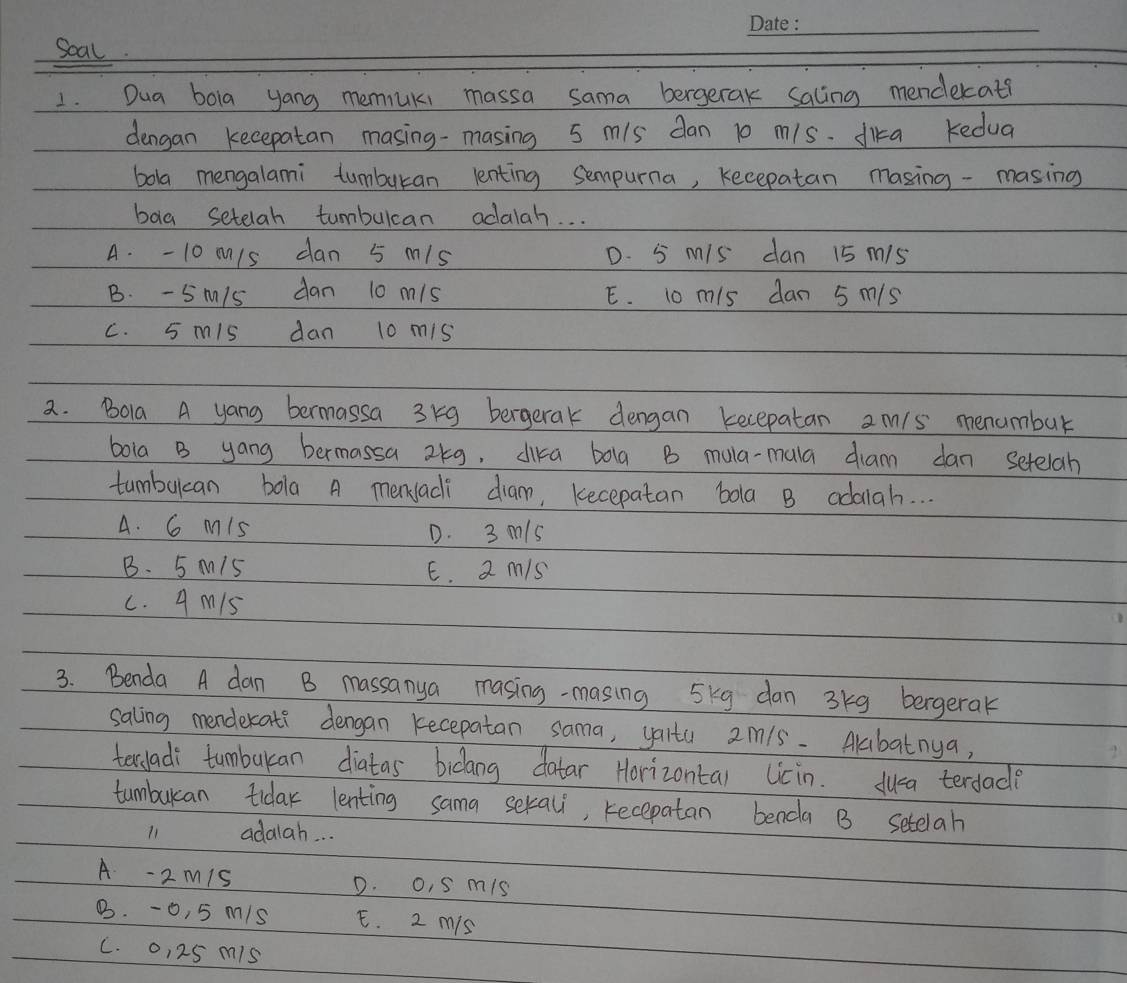 Date :
Soal
1. Dua bola yang memiliki massa sama bergerak saling mendekati
dengan kecepatan masing-masing 5 m/s dan 10 m/s. Jika kedua
bola mengalami tumbukan lenting sempurna, kecepatan masing-masing
bola setelah tumbukan adalah...
A. -10 m/s dan 5 m/s D. 5 m/s dan 15 m/s
B. -5 m/s dan 10 m/s E. 10 m/s dan 5 m/s
C. 5 m/s dan 10 m/s
2. Bola A yang bermassa 3kg bergerak dengan kecepatan 2 m/s menumbuk
bola B yang bermassa 2kg. Jika bola B mula-mula diam dan setelah
tumbukan bola A menjadi diam, kecepatan bola B adalah...
A. 6 m/s D. 3 m/s
B. 5 m/s E. 2 m/s
C. 4 m/s
3. Benda A dan B massanya masing-masing 5kg dan 3kg bergerak
saling mendekati dengan kecepatan sama, yaitu 2m/s. Akibatnya,
terjadi tumbukan diatas bidang datar Horizontal licin. Jika terjadi
tumbukan tidak lenting sama sekali, kecepatan benda B setelah
" adalah...
A. -2 m/s D. 0,5 m/s
B. -0,5 m/s E. 2 m/s
C. 0,25 m/s